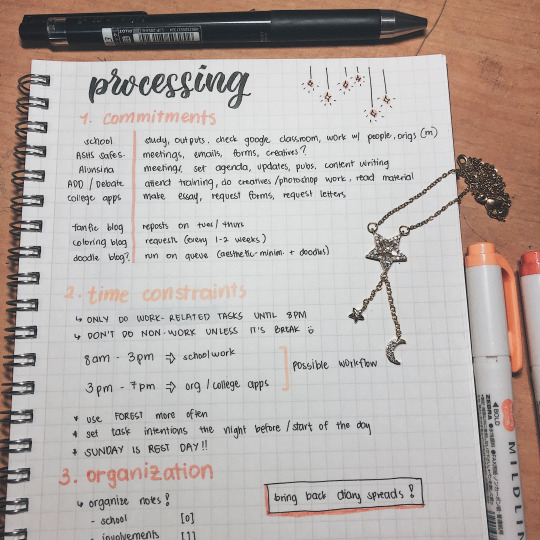 processing
1. commitments
school study, outputs, check google classroom, work w/ people, origs (m)
ASHS Safes. meetings, emails, forms, creatives?
Alunsina meetings, set agenda, updates, pubs, content writing
ADD / Debate attend training, do creatives/photoshop work, read material
college apps make essay, request forms, request letters
fanfic blog reposts on tues/ thurs
coloring blog requests (every 1-2 weeks)
doodle blog? run on queue (aesthetic-minim. + doodles)
2. time constraints
↳ ONLY DO WORK-RELATED TASKS UNTIL 8PM
↳ DON'T DO NON-WORK UNLESS IT'S BREAK
8am - 3pm ⇒ schoolwork
possible workflow
3pm - 7pm ⇒ org / college apps
* use FOREST more often
* set task intentions the night before / start of the day
* SUNDAY IS REST DAY!!
3. organization
↳ organize notes!
- school [0]
- involvements [1]
bring back diary spreads!
BOLD
ZEBRA
MILDLIN